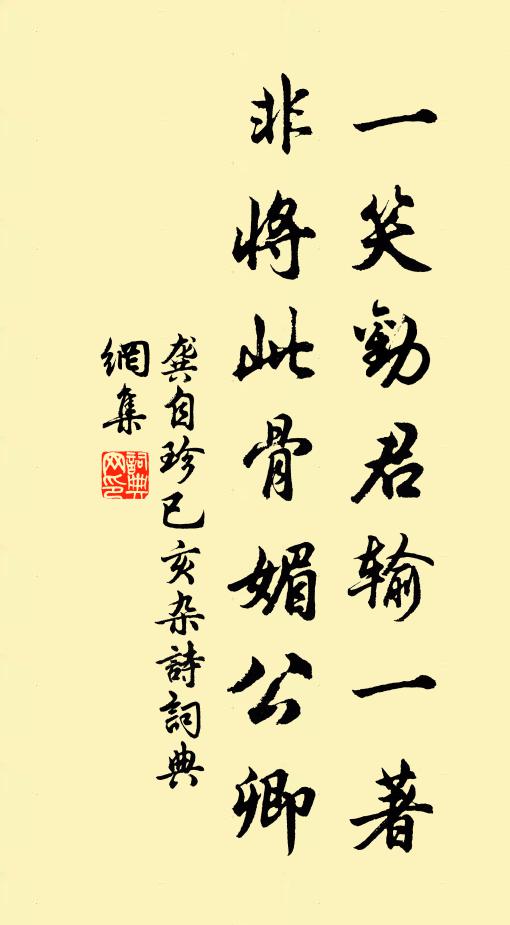 一笑勸君输一著
非將此骨媚公卿
龚自珍已亥杂詩詞典
網集
詞典网印